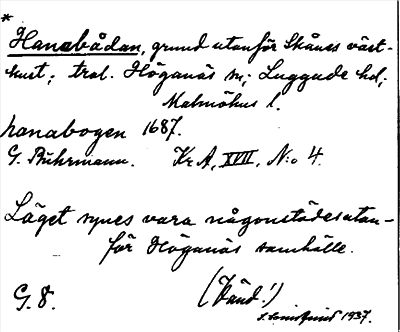 *
Hanabådan, grund utanför Skånes väst-
kust; trol. Höganäs sn; Luggude hd;
Malmöhus l.
hanabogen 1687.
G. Buhrmann. Kr A, XVII, N:o 4.
Läget synes vara någonstädes utan-
för Höganäs samhälle.
(Känd!)
G. 8.
1937.